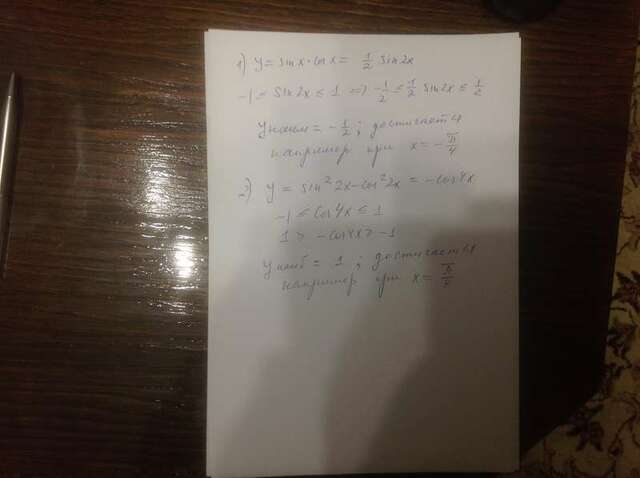 1) y = sin x · cos x = 1/2 sin 2x
-1 ≤ sin 2x ≤ 1 => -1/2 ≤ 1/2 sin 2x ≤ 1/2
y наим = -1/2 ; достигается
например при x = -π/4
2) y = sin² 2x - cos² 2x = -cos 4x
-1 ≤ cos 4x ≤ 1
1 ≥ -cos 4x ≥ -1
y наиб = 1 ; достигается
например при x = π/4